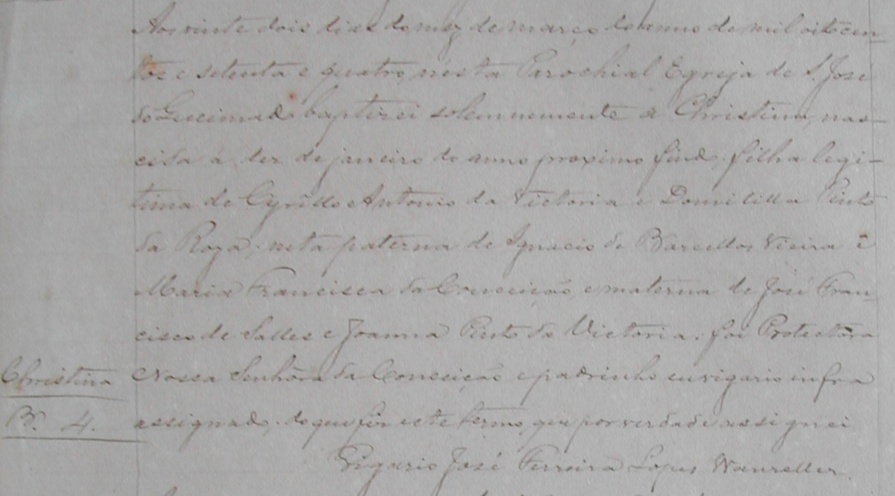 Aos vinte dois dias do mez de março do anno de mil oitocen-
tos e setenta e quatro, nesta Parochial Egreja de S. José
do Queimado baptizei solemnemente a Christina, nas-
cida a dez de janeiro do anno proximo findo, filha legi-
tima de Cyrillo Antonio da Victoria e Domitilla Pinto
da Roza, neta paterna de Ignacio de Barcellos Vieira e
Maria Francisca da Conceição e materna de José Fran-
cisco de Salles e Joanna Pinto da Victoria. foi Protectora
Christina
Nossa Senhora da Conceição e padrinho eu vigario infra
B. 4.
assignado, do que fiz este termo, que por verdade assignei
Vigario José Ferreira Lopes